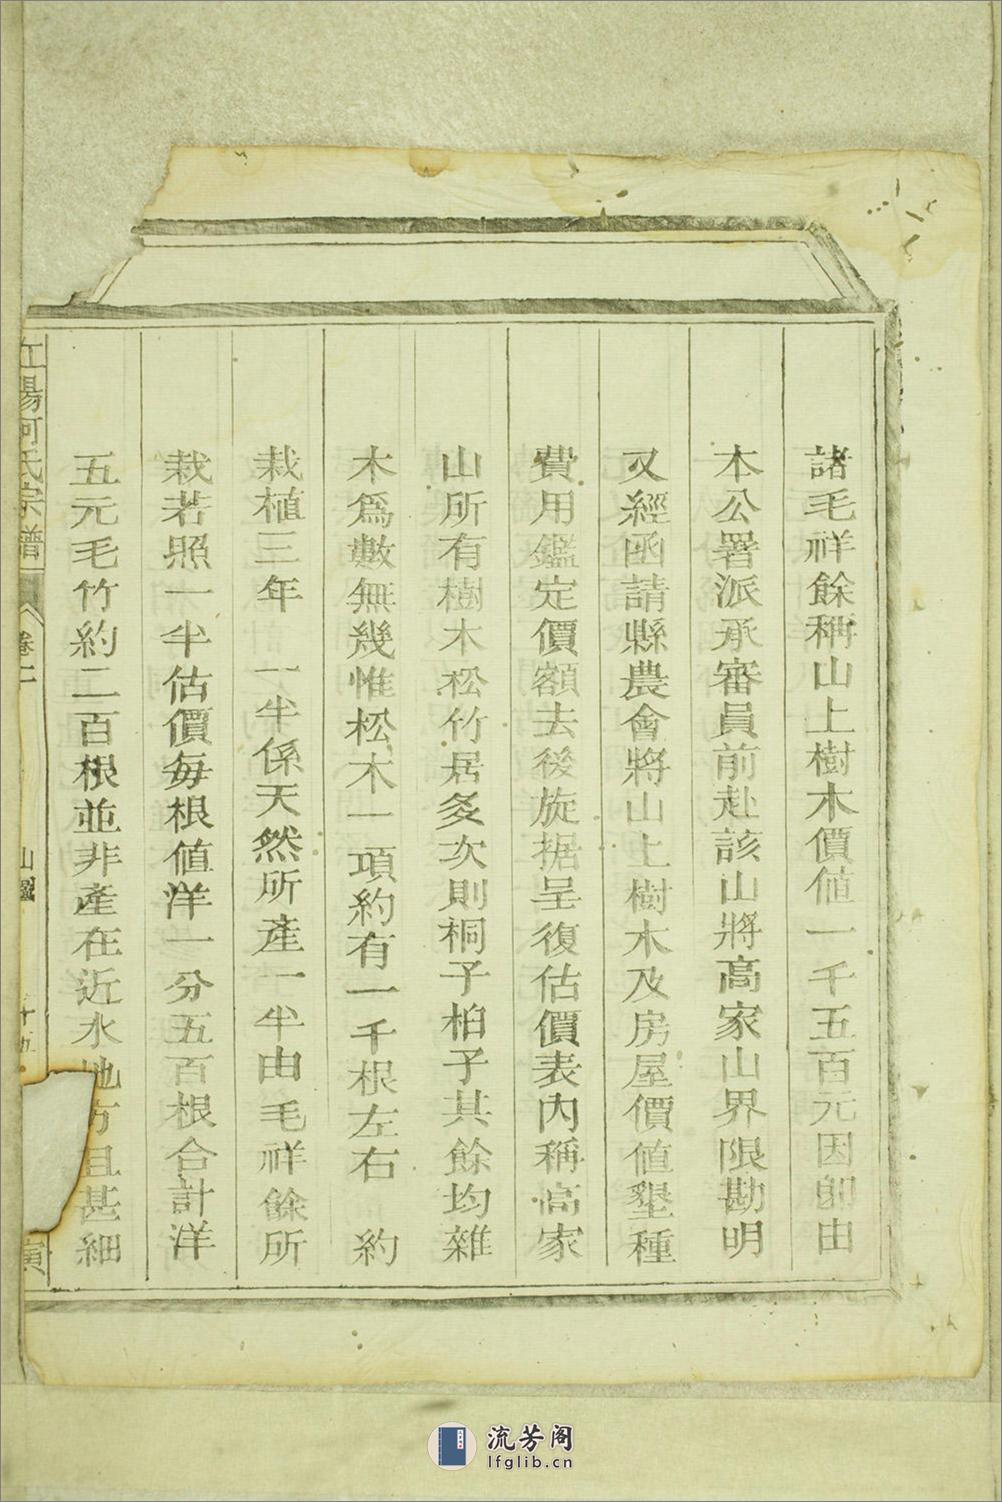 諸毛祥餘稱山上樹木價値一千五百元因卽由
本公署派承審員前赴該山將高家山界限勘明
又經函請縣農會將山上樹木及房屋價値墾種
費用鑑定價額去後旋据呈復估價表內稱高家
山所有樹木松竹居多次則桐子柏子其餘均雜
木爲數無幾惟松木一項約有一千根左右 約
栽植三年 一半係天然所產一半由毛祥餘所
栽若照一半估價每根值洋一分五百根合計洋
五元毛竹約二百根並非產在近水地方且甚細
江陽何氏宗譜 卷二 山 十五
流芳阁
lfglib.cn